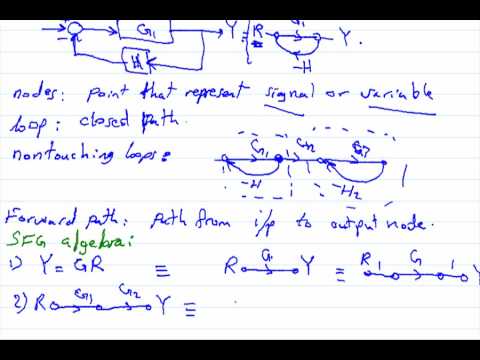 G₁ Y ≡ R G₁ Y.
H -H
nodes: point that represent signal or variable
loop: closed path.
nontouching loops: G₁ G₂ G₃
-H -H₂
Forward path: path from i/p to output node.
SFG algebra:
1) Y = GR ≡ R G Y ≡ R 1 G 1 Y
2) R G₁ G₂ Y ≡